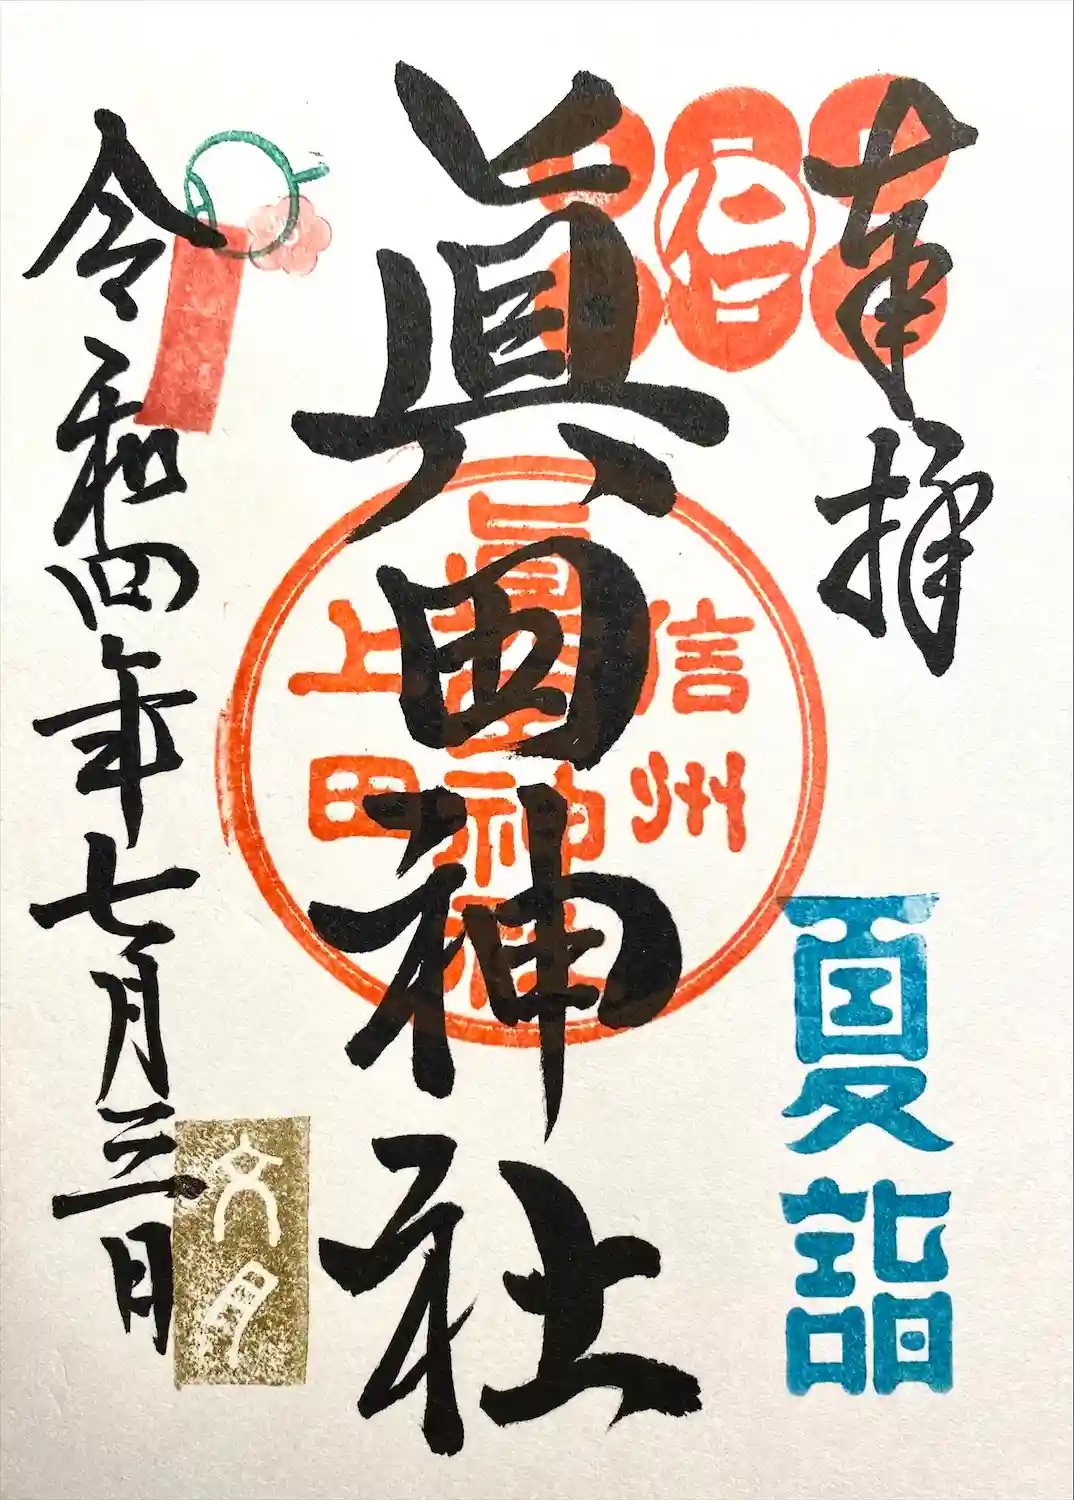 奉拝
仁
夏詣
眞田神社
信州
眞田神社
上田
令和四年七月三日
文月